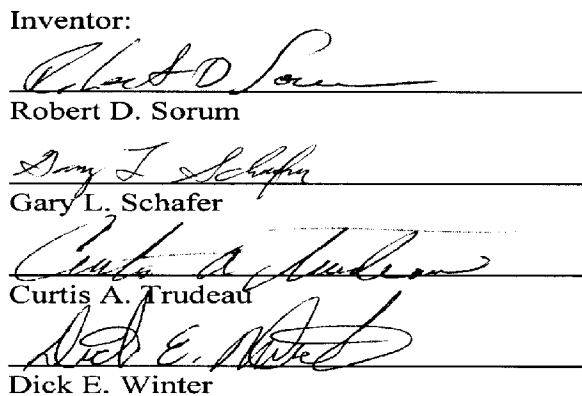 Inventor:
Robert D Sorum
Robert D. Sorum
Gary L Schafer
Gary L. Schafer
Curtis A Trudeau
Curtis A. Trudeau
Dick E. Winter
Dick E. Winter